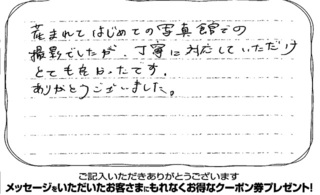 産まれてはじめての写真館での
撮影でしたが、丁寧に対応していただけ
とても良かったです。
ありがとうございました。
ご記入いただきありがとうございます
メッセージをいただいたお客さまにもれなくお得なクーポン券プレゼント!